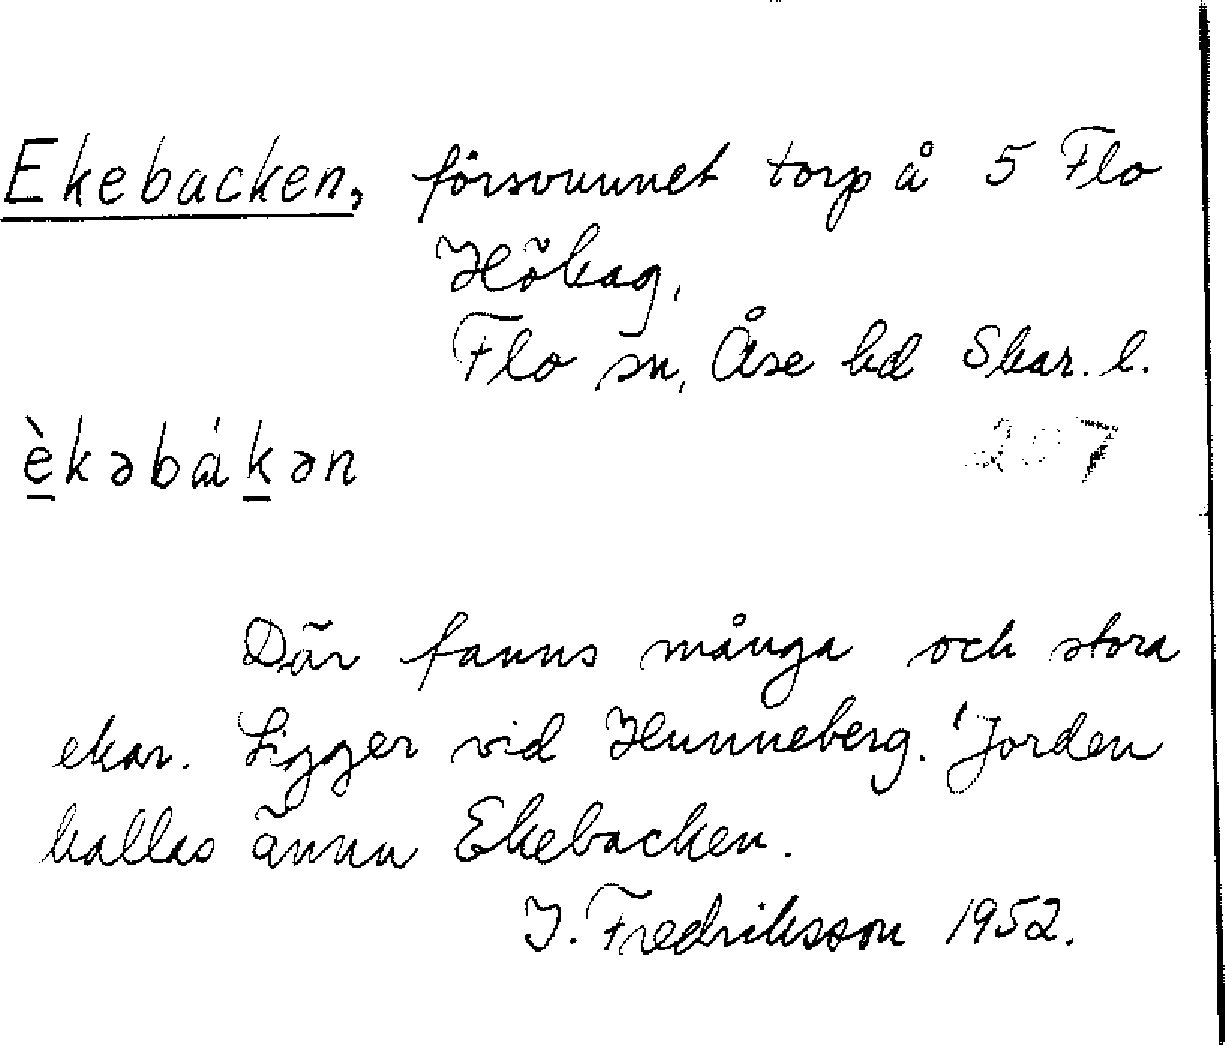 Ekebacken, försvunnet torp å 5 Flo
Hökag,
Flo sn, Åse hd Skar. l.
èkəbákən
207
Där fanns många och stora
ekar. Ligger vid Hunneberg. Jorden
kallas ännu Ekebacken.
I. Fredriksson 1952.